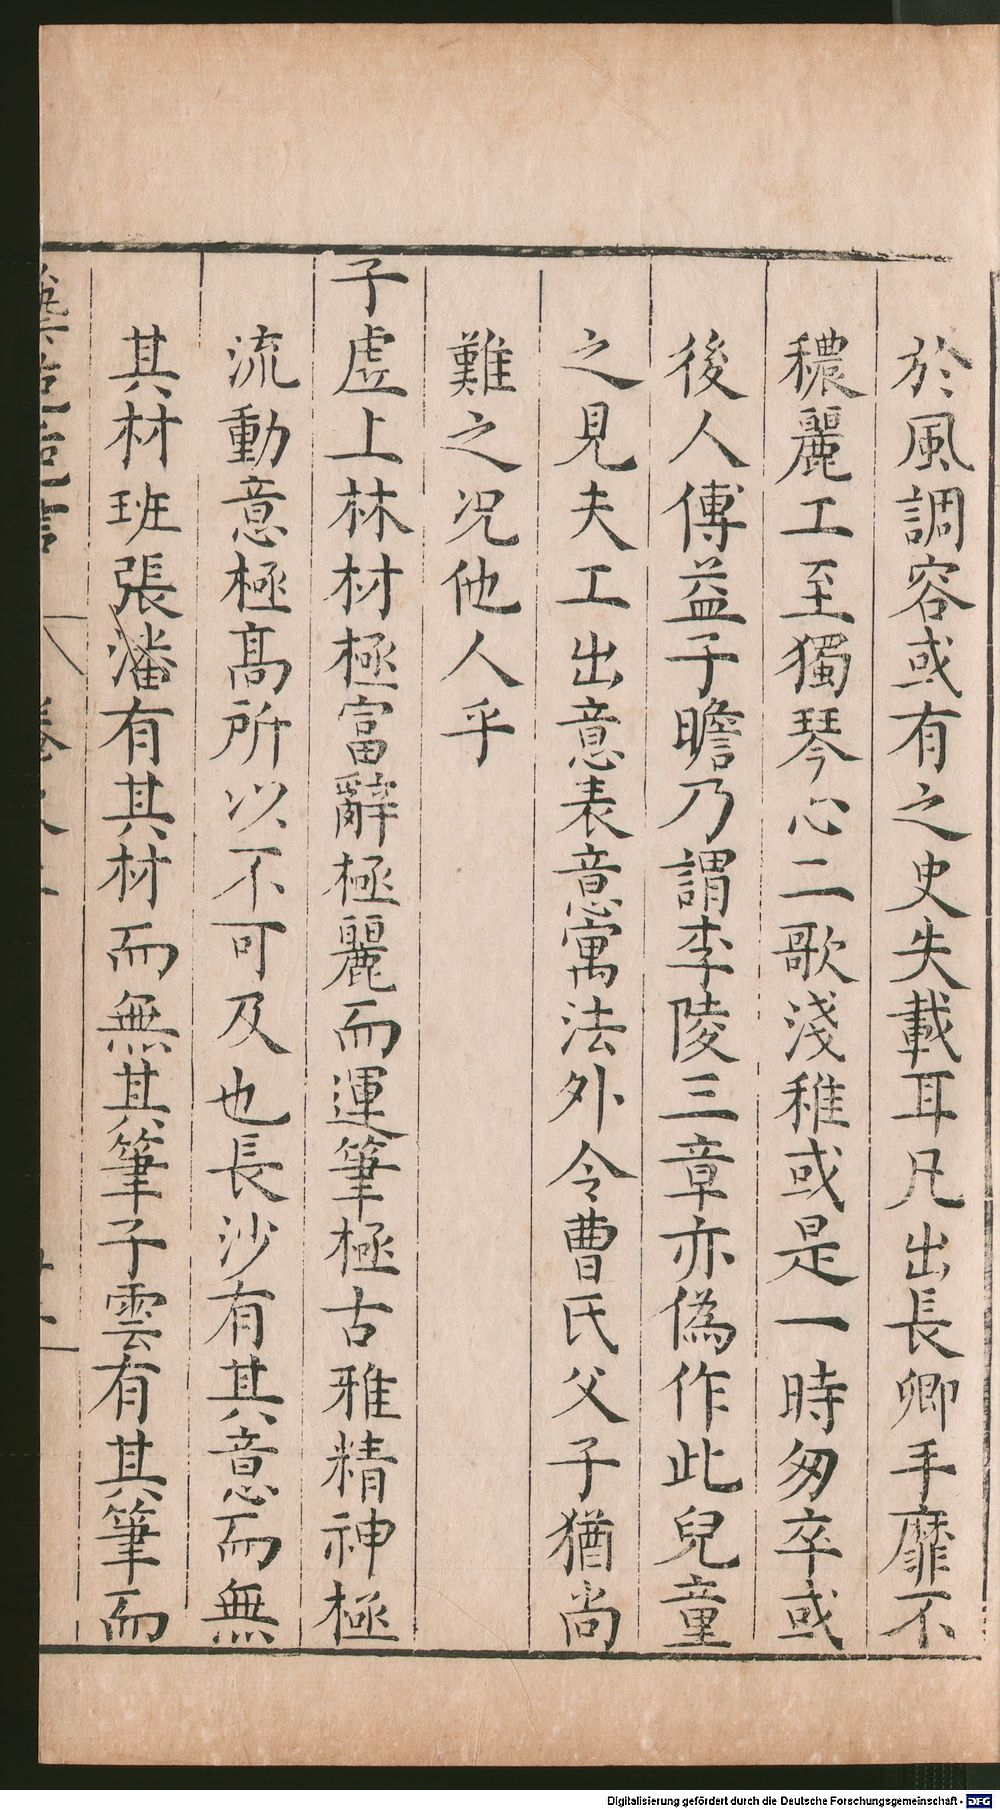 於風調容或有之史失載耳凡出長卿手靡不
穠麗工至獨琴心二歌淺稚或是一時匆卒或
後人傅益子瞻乃謂李陵三章亦偽作此兒童
之見夫工出意表意寓法外令曹氏父子猶尚
難之况他人乎
子虛上林材極富辭極麗而運筆極古雅精神極
流動意極髙所以不可及也長沙有其意而無
其材班張潘有其材而無其筆子雲有其筆而
Digitalisierung gefördert durch die Deutsche Forschungsgemeinschaft - DFG